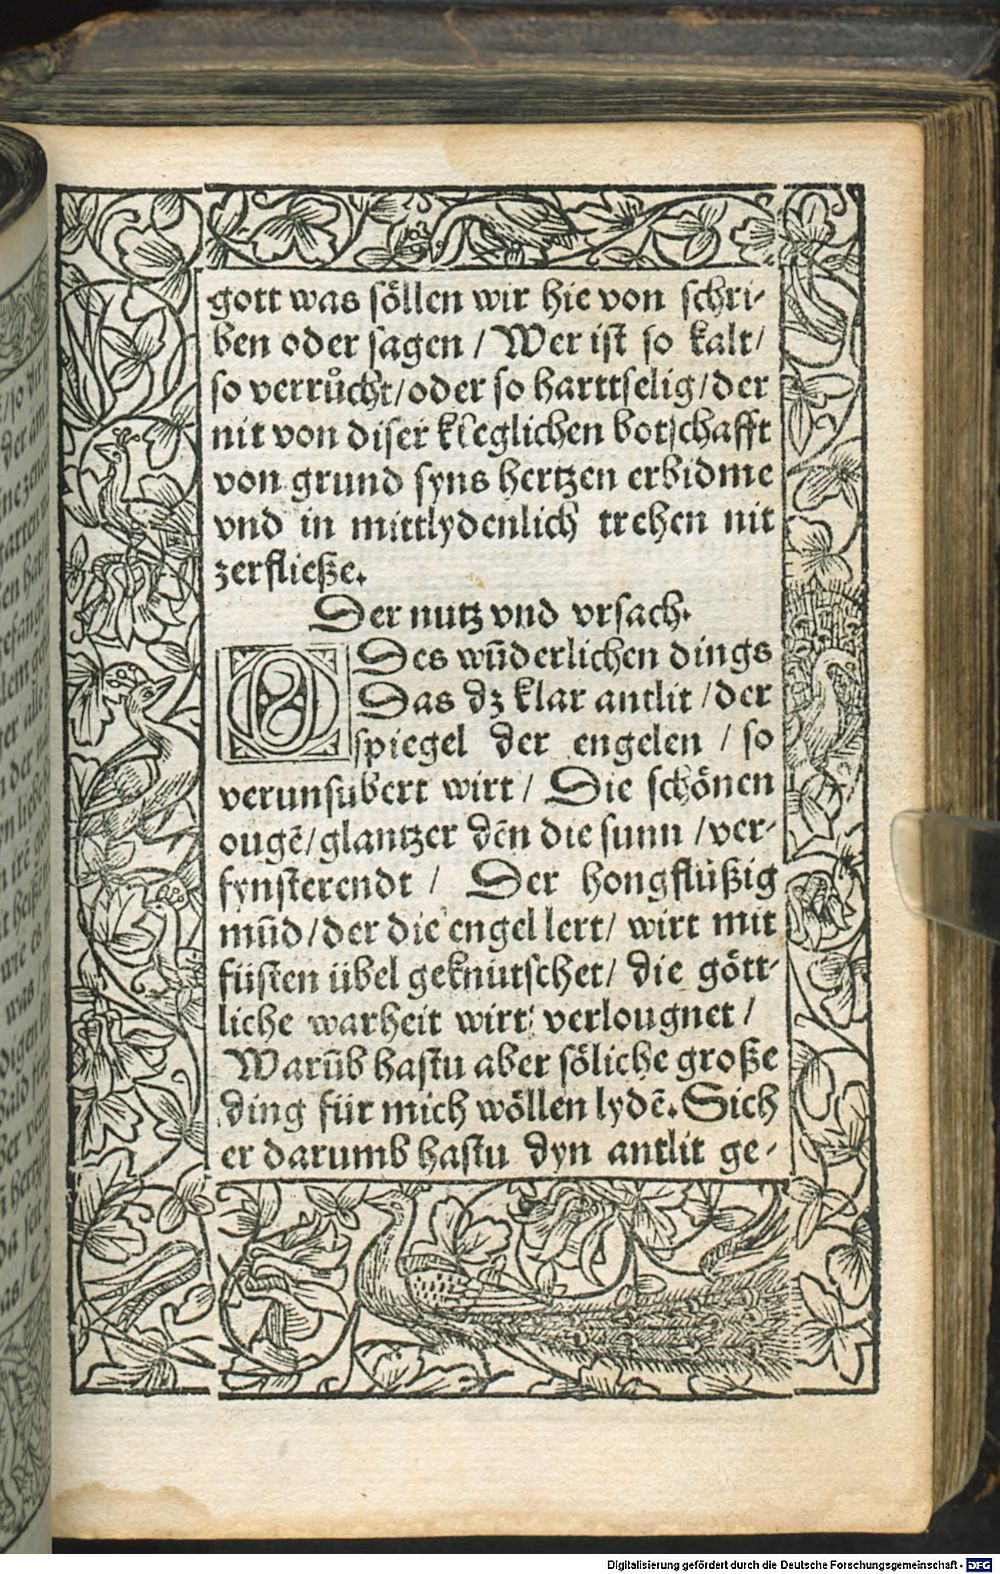 gott was söllen wir hie von schri-
ben oder sagen / Wer ist so kalt /
so verruͦcht / oder so harttselig / der
nit von diser kleglichen botschafft
von grund syns hertzen erbidme
vnd in mittlydenlich trehen nit
zerfließe.
Der nutz vnd vrsach.
O Des wūderlichen dings
Das dz klar antlit / der
spiegel der engelen / so
verunsubert wirt / Die schönen
ougē / glantzer dēn die sunn / ver-
fynsterendt / Der hongflüßig
mūd / der die engel lert / wirt mit
füsten übel geknutschet / die gött-
liche warheit wirt verlougnet /
Warūb hastu aber söliche große
ding für mich wöllen lydē. Sich
er darumb hastu dyn antlit ge-
Digitalisierung gefördert durch die Deutsche Forschungsgemeinschaft - DFG